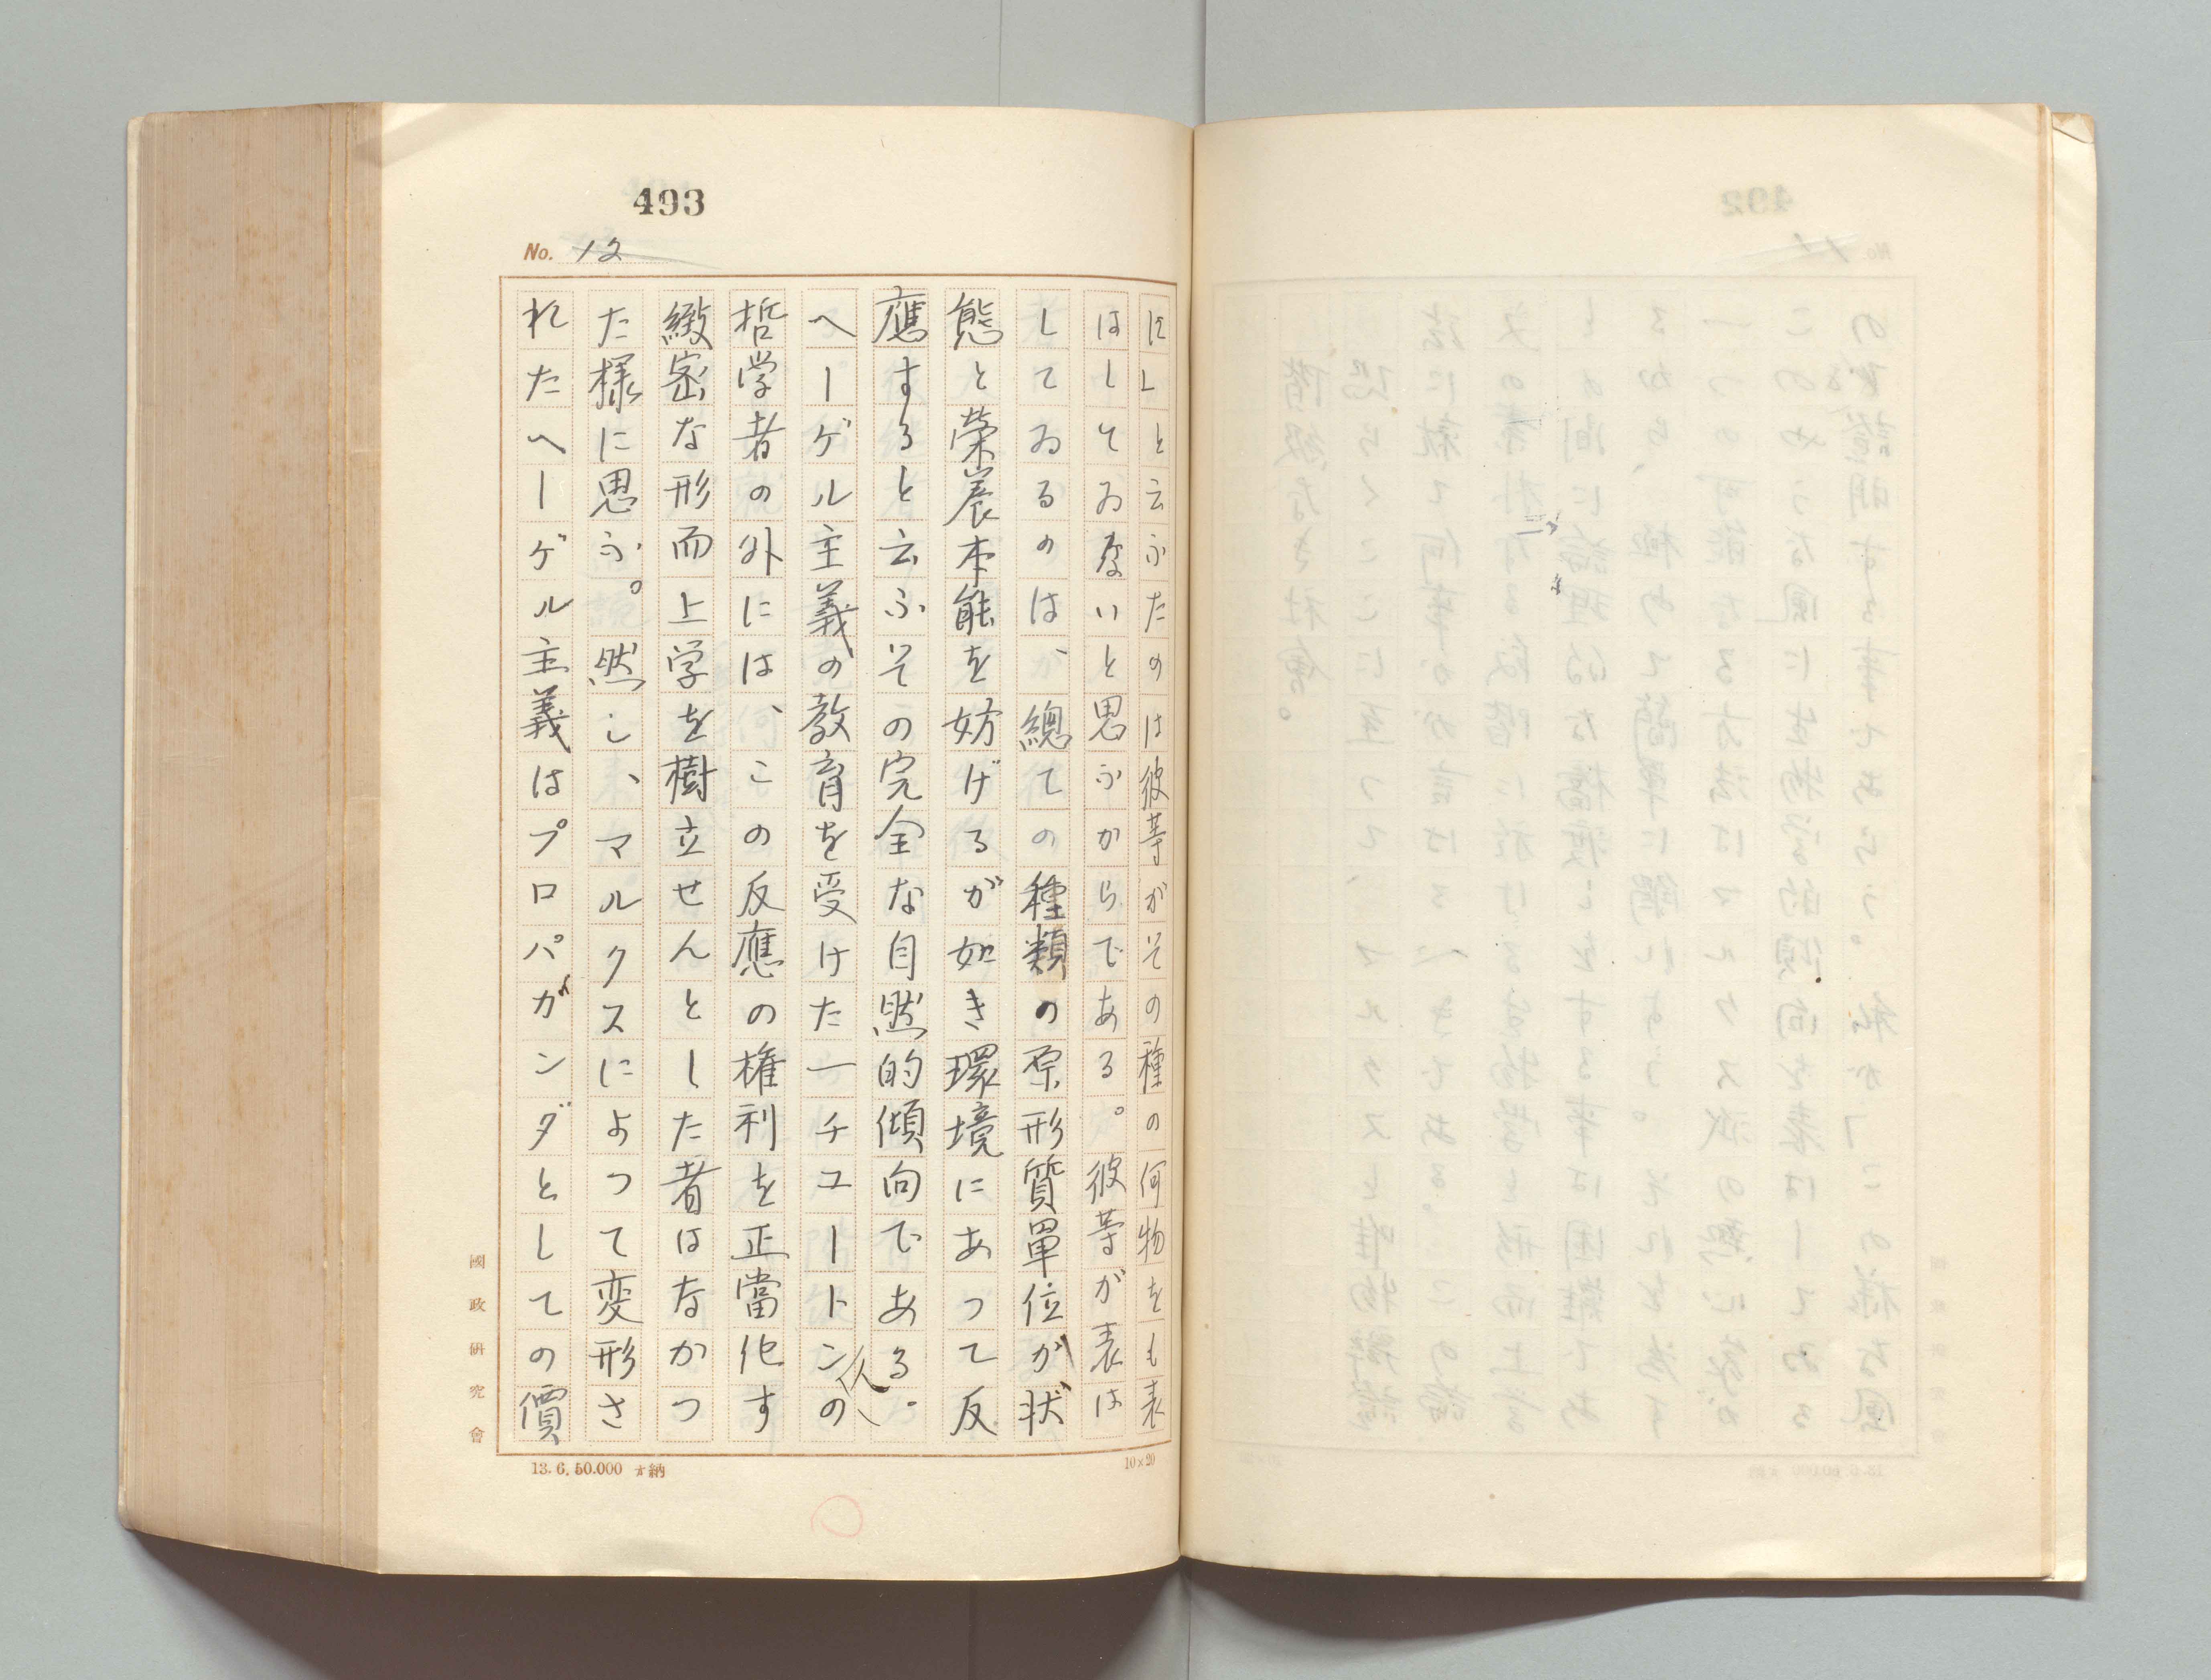 493
No. 12
に」と云ふたのは彼等がその種の何物をも表
はしてゐないと思ふからである。彼等が表は
してゐるのは、總ての種類の原形質單位が状
態と榮養本能を妨げるが如き環境にあつて反
應すると云ふその完全な自然的傾向である。
ヘーゲル主義の教育を受けた一チユートン人の
哲学者の外には、この反應の権利を正當化す
緻密な形而上学を樹立せんとした者はなかつ
た様に思ふ。然し、マルクスによつて変形さ
れたヘーゲル主義はプロパガンダとしての價
國政研究會
13.6.50.000 納
10×20